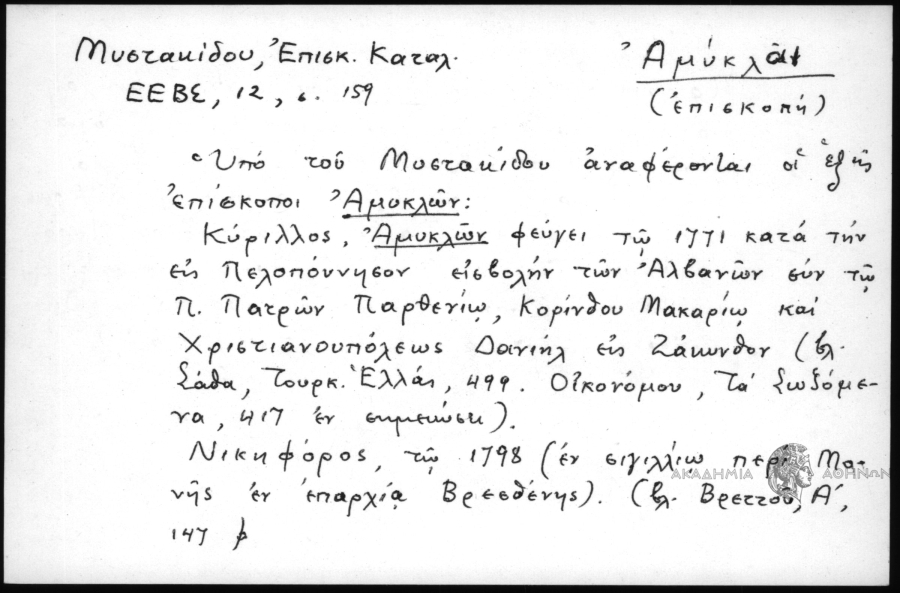 Μυστακίδου, Ἐπισκ. Καταλ.
Ἀμύκλαι
ΕΕΒΣ, 12, σ. 159
(ἐπισκοπή)
Ὑπό τοῦ Μυστακίδου ἀναφέρονται οἱ ἑξῆς
ἐπίσκοποι Ἀμυκλῶν:
Κύριλλος, Ἀμυκλῶν φεύγει τῷ 1771 κατά τήν
εἰς Πελοπόννησον εἰσβολήν τῶν Ἀλβανῶν σύν τῷ
Π. Πατρῶν Παρθενίῳ, Κορίνθου Μακαρίῳ καί
Χριστιανουπόλεως Δανιήλ εἰς Ζάκυνθον (βλ.
Σάθα, Τουρκ. Ἑλλάς, 499. Οἰκονόμου, Τά Σωζόμε-
να, 417 ἐν σημειώσει).
Νικηφόρος, τῷ 1798 (ἐν σιγιλλίῳ περί Μο-
νῆς ἐν ἐπαρχίᾳ Βρεσθένης). (βλ. Βρεττοῦ, Α΄,
147
ΑΚΑΔΗΜΙΑ ΑΘΗΝΩΝ